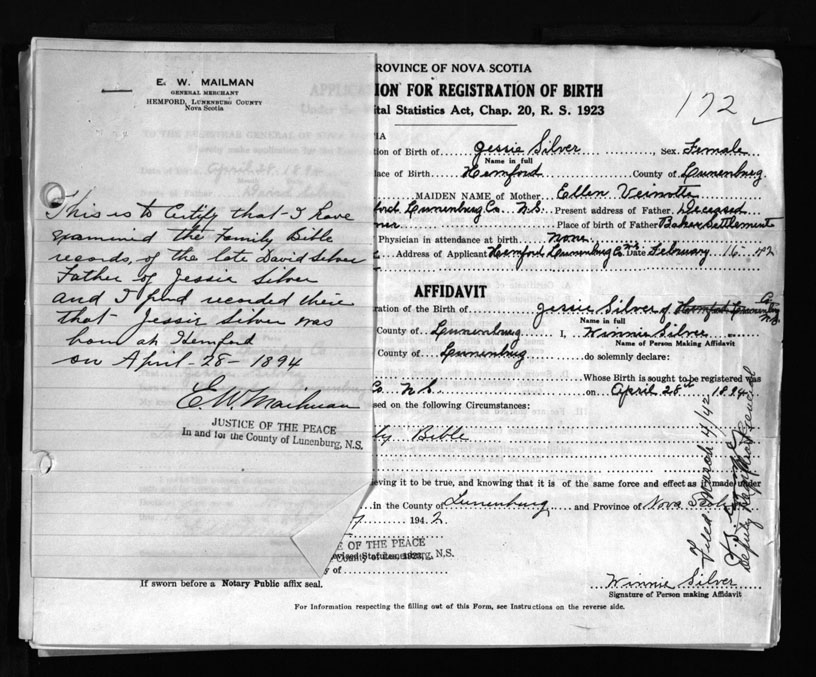 E. W. MAILMAN
GENERAL MERCHANT
HEMFORD, LUNENBURG COUNTY
Nova Scotia
This is to Certify that I have
examined the Family Bible
records, of the late David Silver
Father of Jessie Silver
and I find recorded there
that Jessie Silver was
born at Hemford
on April - 28 - 1894
E. W. Mailman
JUSTICE OF THE PEACE
In and for the County of Lunenburg, N.S.
ROVINCE OF NOVA SCOTIA
ION FOR REGISTRATION OF BIRTH
ital Statistics Act, Chap. 20, R. S. 1923
172
tion of Birth of Jessie Silver, Sex Female
Name in full
lace of Birth Hemford County of Lunenburg
MAIDEN NAME of Mother Ellen Veinotte
ford Lunenburg Co. N.S. Present address of Father Deceased
Place of birth of Father Baker Settlement
Physician in attendance at birth none
Address of Applicant Hemford Lunenburg Co. N.S. Date February 16
AFFIDAVIT
ration of the Birth of Jessie Silver of Hemford Lunenburg Co. N.S.
Name in full
County of Lunenburg I, Winnie Silver
Name of Person Making Affidavit
County of Lunenburg do solemnly declare:
Whose Birth is sought to be registered was
Co. N.S. on April 28th 1894
sed on the following Circumstances:
ly Bible
lieving it to be true, and knowing that it is of the same force and effect as if made under
in the County of Lunenburg and Province of Nova Scotia
1942
E OF THE PEACE
County of Lunenburg, N.S.
s of
If sworn before a Notary Public affix seal.
Winnie Silver
Signature of Person making Affidavit
For Information respecting the filling out of this Form, see Instructions on the reverse side.
March 4/42
Deputy Registrar General